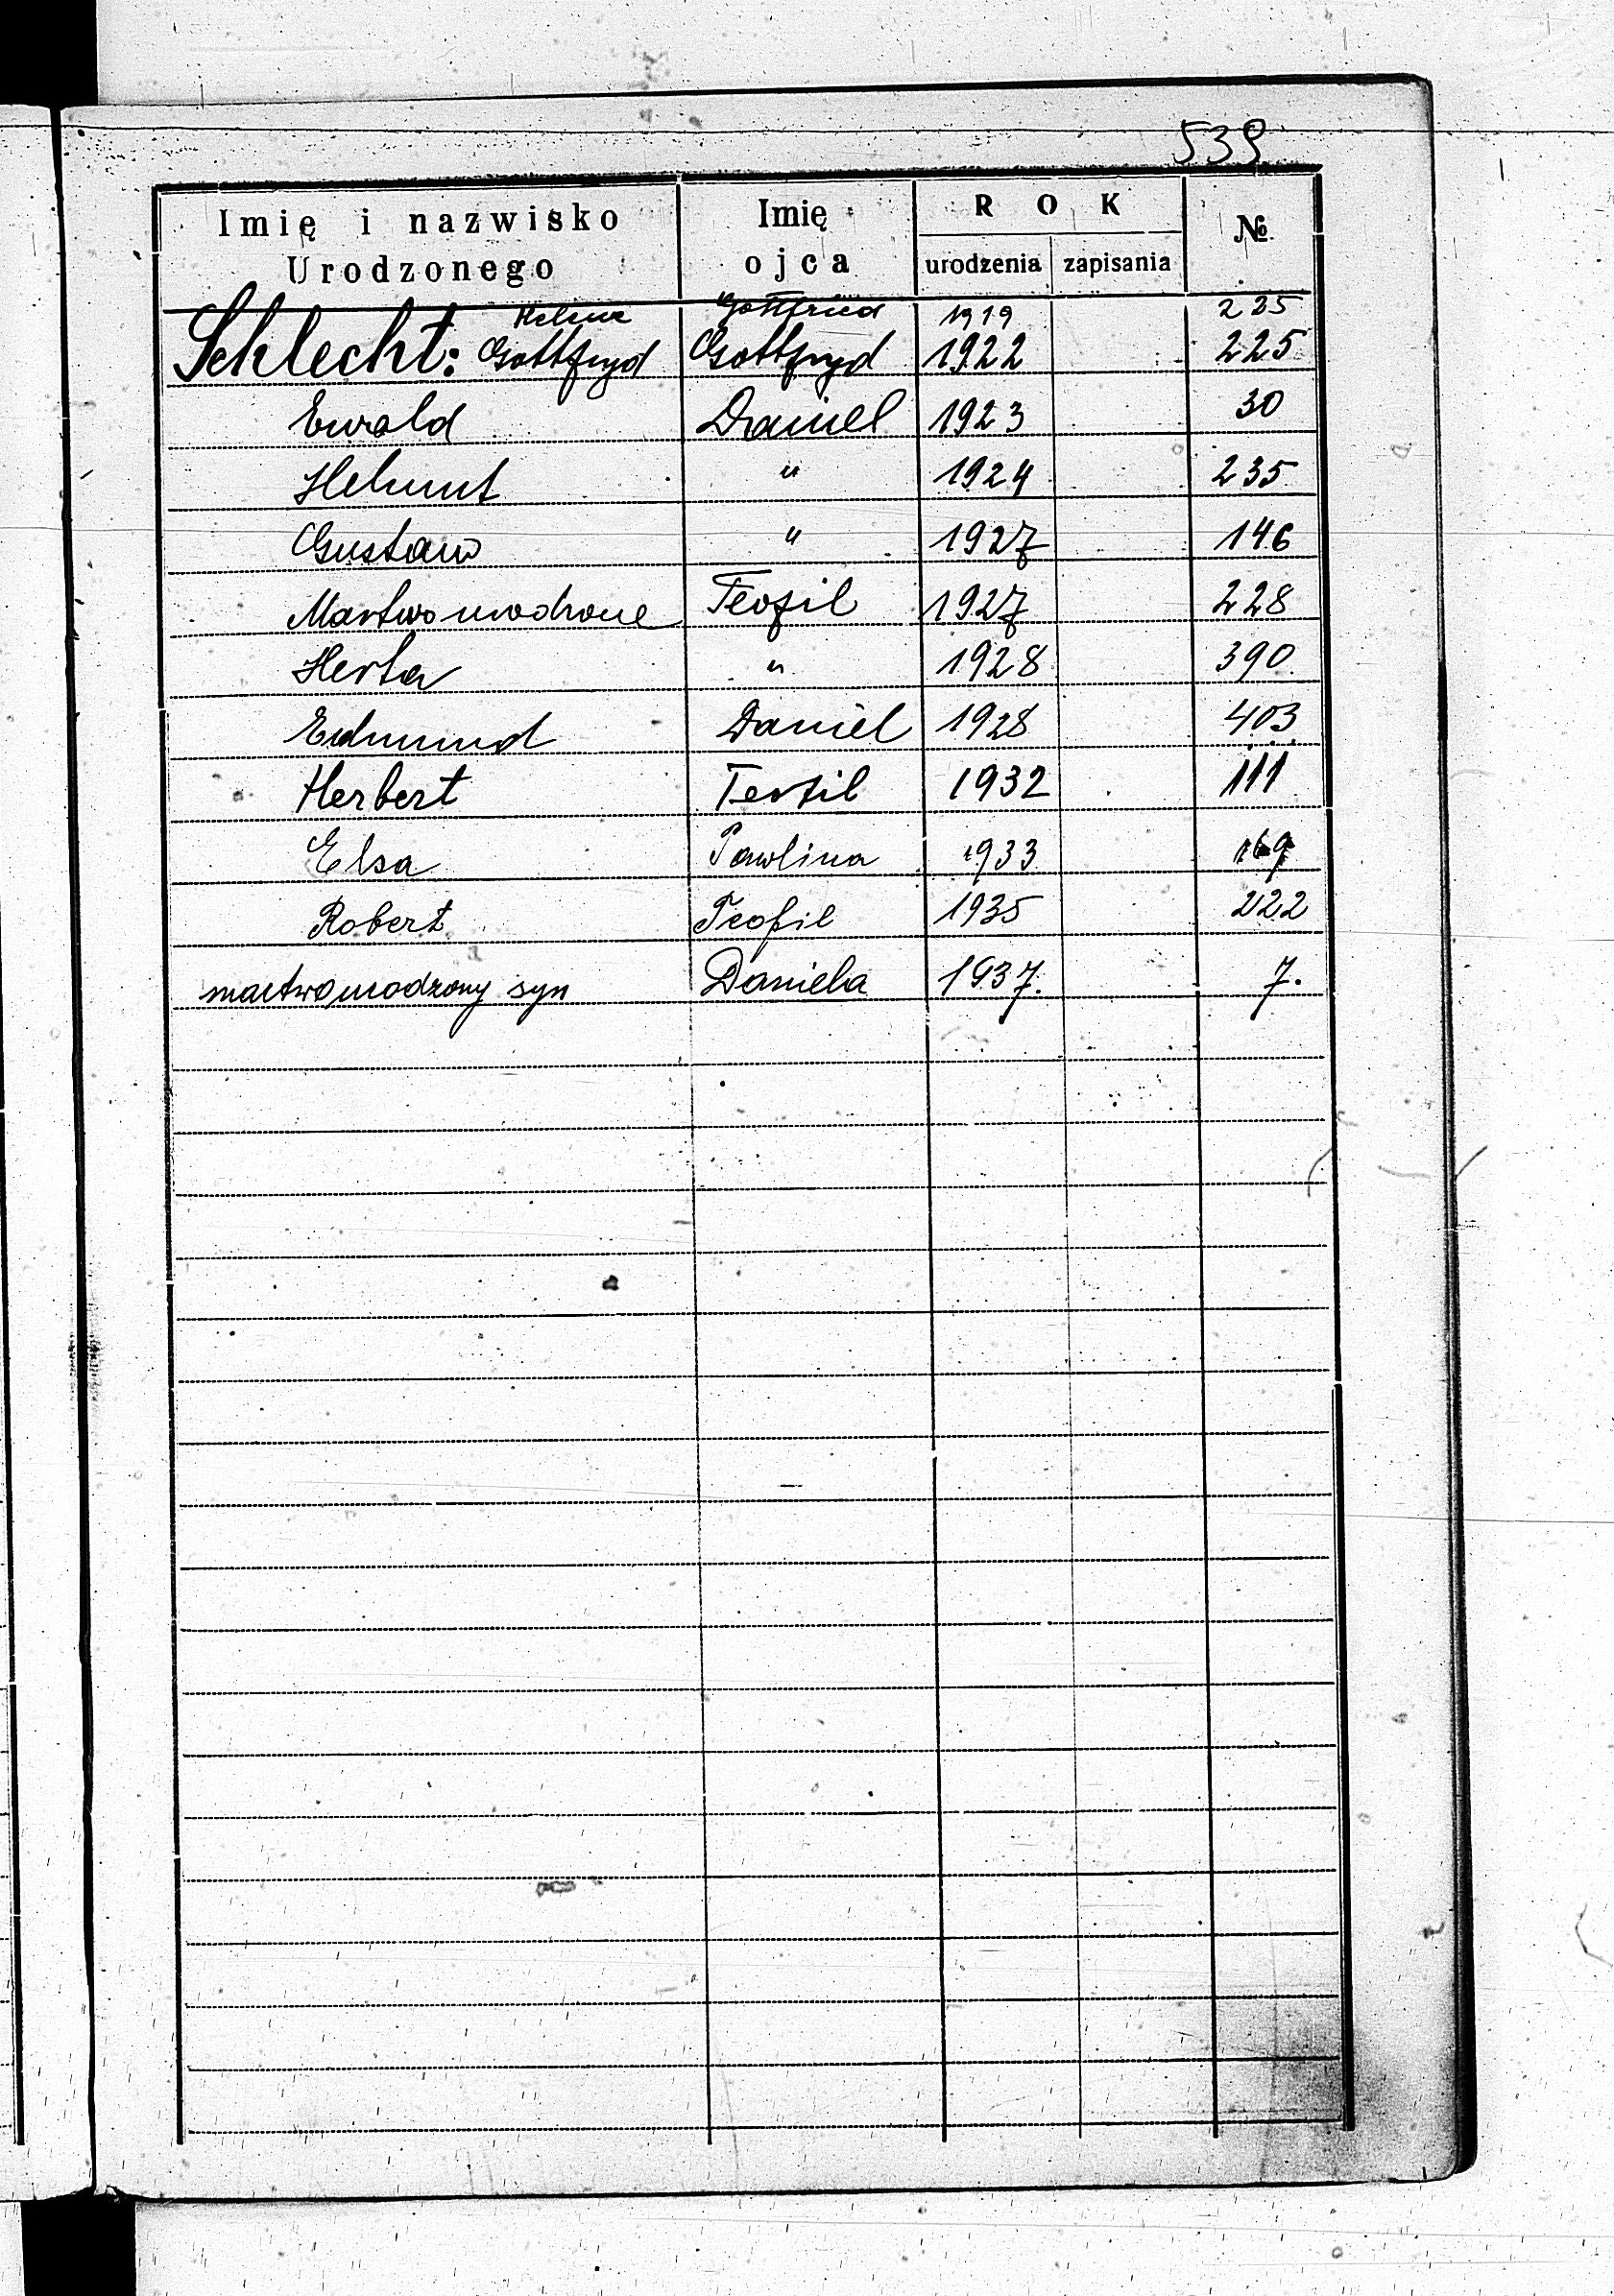 539
Imię i nazwisko Urodzonego Imię ojca ROK urodzenia zapisania №
Helena Gottfried 1919 225
Schlecht: Gottfryd Gottfryd 1922 225
Ewald Daniel 1923 30
Helmut " 1924 235
Gustaw " 1927 146
Martwo urodzone Teofil 1927 228
Herta " 1928 390
Edmund Daniel 1928 403
Herbert Teofil 1932 111
Elsa Pawlina 1933 169
Robert Teofil 1935 222
martwourodzony syn Daniela 1937. 7.